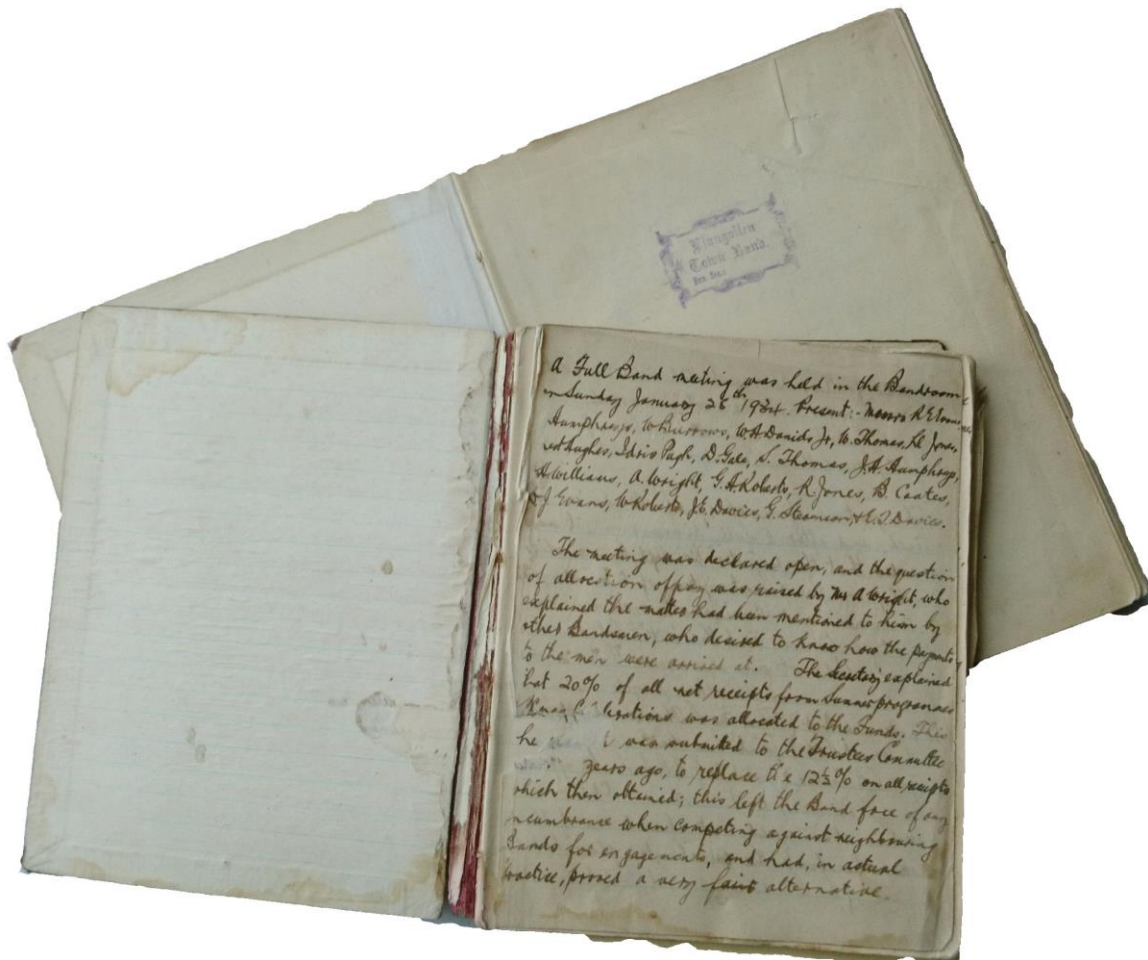 Llangollen
Town Band.
A Full Band meeting was held in the Bandroom
on Sunday January 28th 1934. Present:- Messrs R E Evans
Humphreys, W Burrows, W A Davids Jr, W. Thomas, Ll Jones,
Hughes, Idris Pugh, D. Gale, S. Thomas, J. A. Humphreys,
Williams, A. Wright, G. A. Roberts, R Jones, B. Coates,
J Evans, W Roberts, J. E. Davies, G. Steamson, & E. I. Davies.
The meeting was declared open, and the question
of allocation of pay was raised by Mr A Wright, who
explained the matter had been mentioned to him by
other Bandsmen, who desired to know how the payments
to the men were arrived at. The Secretary explained
that 20% of all net receipts from Summer programmes
Xmas was allocated to the Funds. This
he was submitted to the Trustees Committee
years ago, to replace the 12½% on all receipts
which then obtained; this left the Band free of any
incumbrance when competing against neighbouring
Bands for engagements, and had, in actual
practice, proved a very fair alternative.